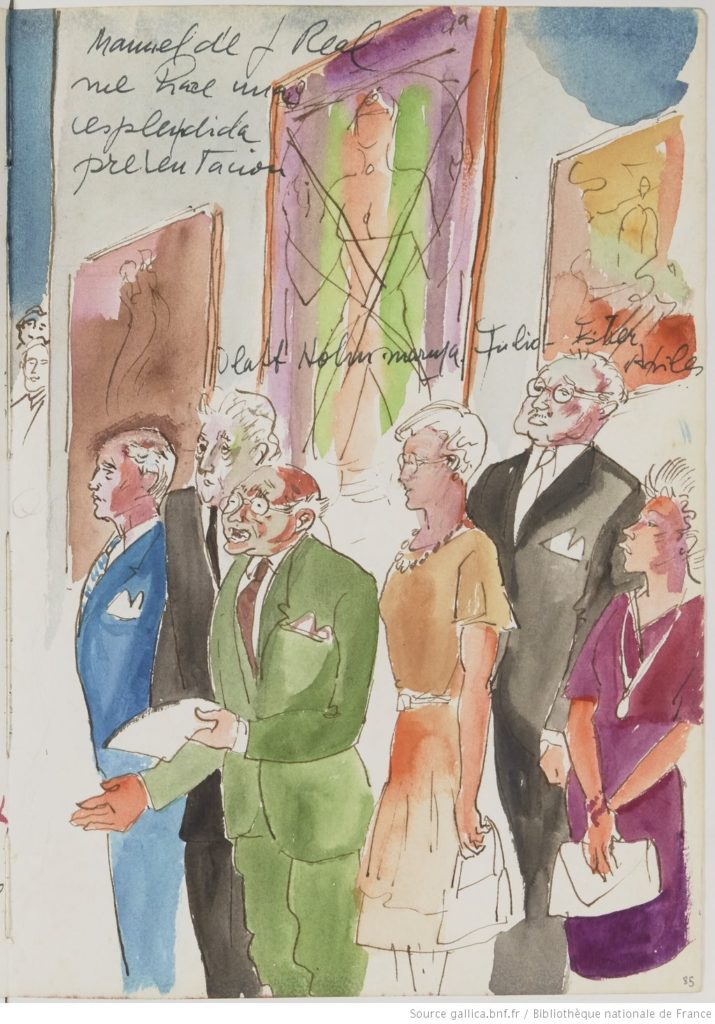 Manuel de J Real
me hace una
esplendida
presentacion
Olaff Holm maruja Julio Ester
Aviles
85
Source gallica.bnf.fr / Bibliothèque nationale de France